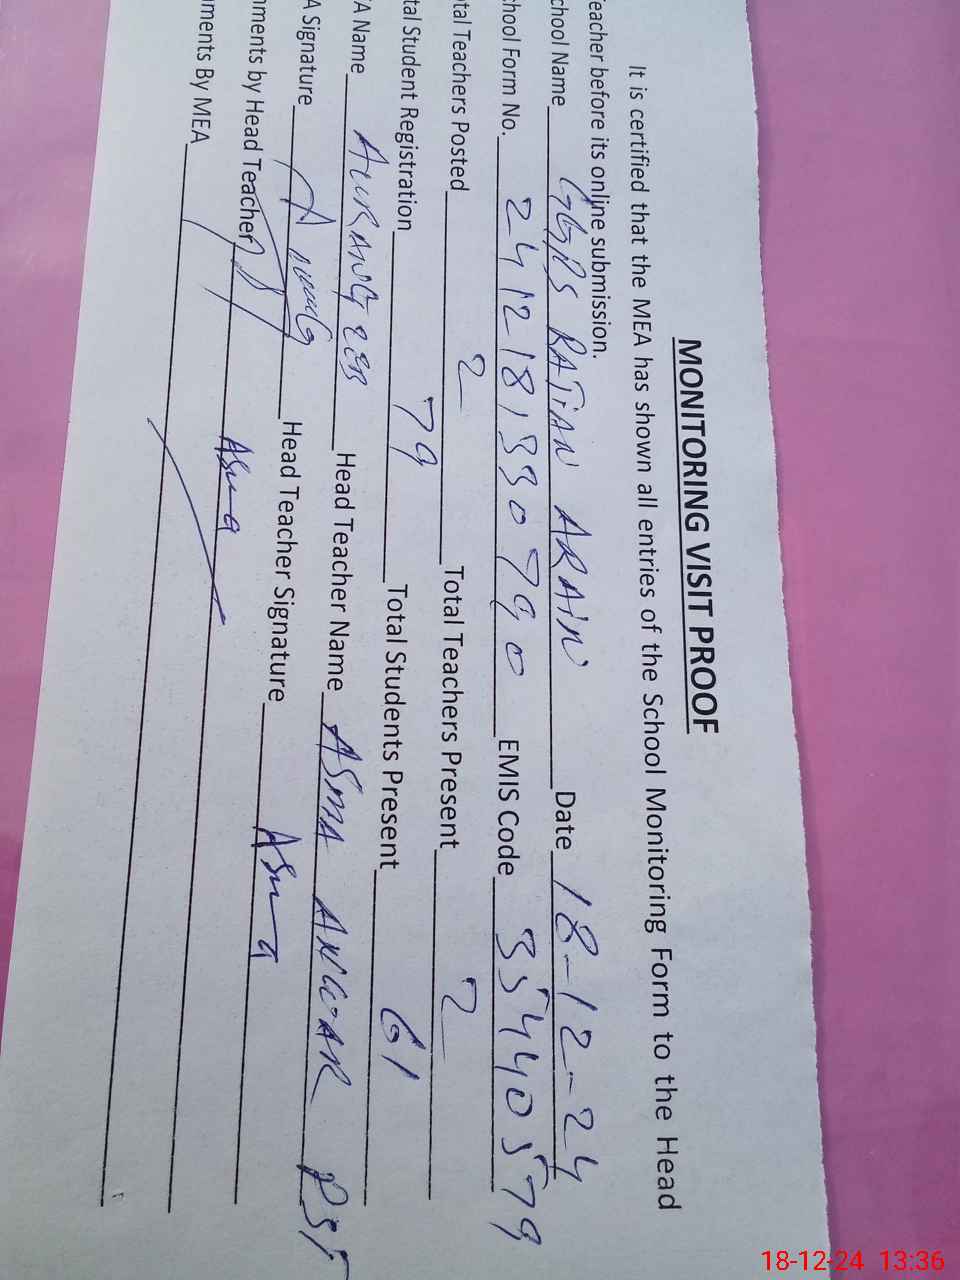 MONITORING VISIT PROOF
It is certified that the MEA has shown all entries of the School Monitoring Form to the Head
eacher before its online submission.
chool Name GGPS RATIAN ARAIN Date 18-12-24
chool Form No. 241218133079 0 EMIS Code 35440579
tal Teachers Posted 2 Total Teachers Present 2
tal Student Registration 79 Total Students Present 61
A Name AURANGZEB Head Teacher Name ASMA ANWAR PST
A Signature Head Teacher Signature Asma
mments by Head Teacher Asma
mments By MEA
18-12-24 13:36